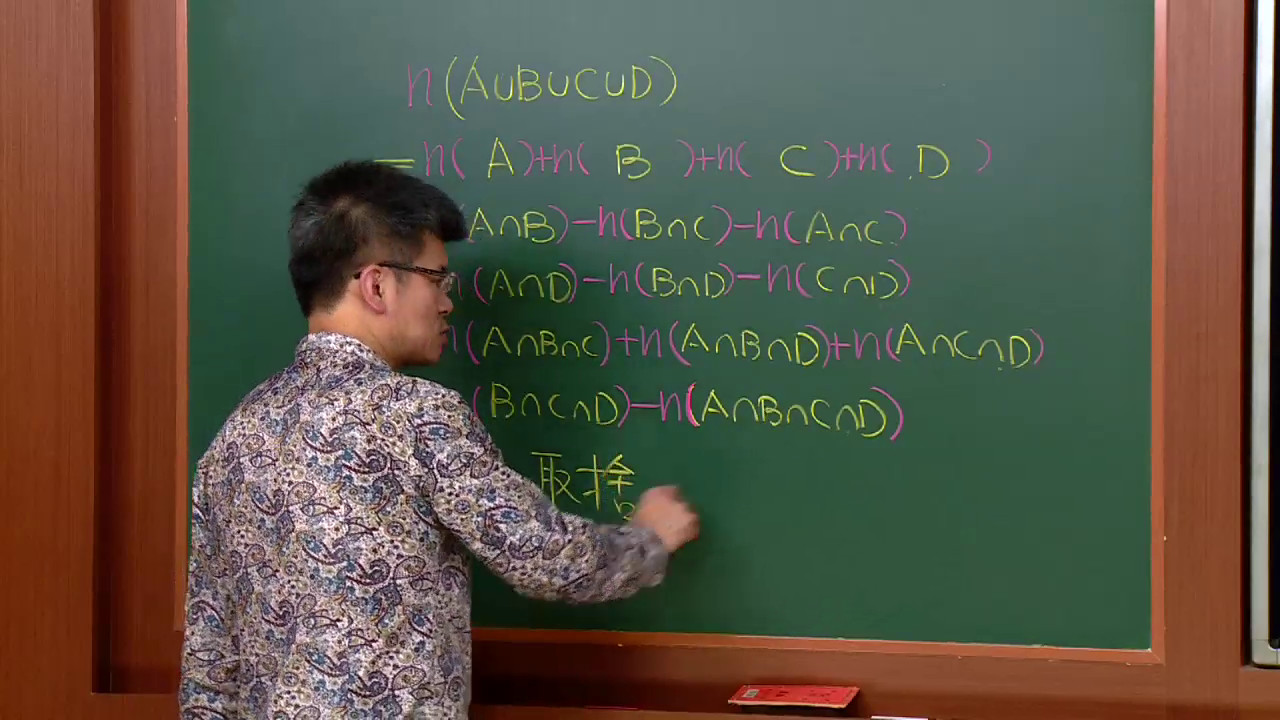 n(A∪B∪C∪D)
=n( A)+n( B )+n( C )+n( D )
(A∩B)-n(B∩C)-n(A∩C)
n(A∩D)-n(B∩D)-n(C∩D)
n(A∩B∩C)+n(A∩B∩D)+n(A∩C∩D)
(B∩C∩D)-n(A∩B∩C∩D)
取捨